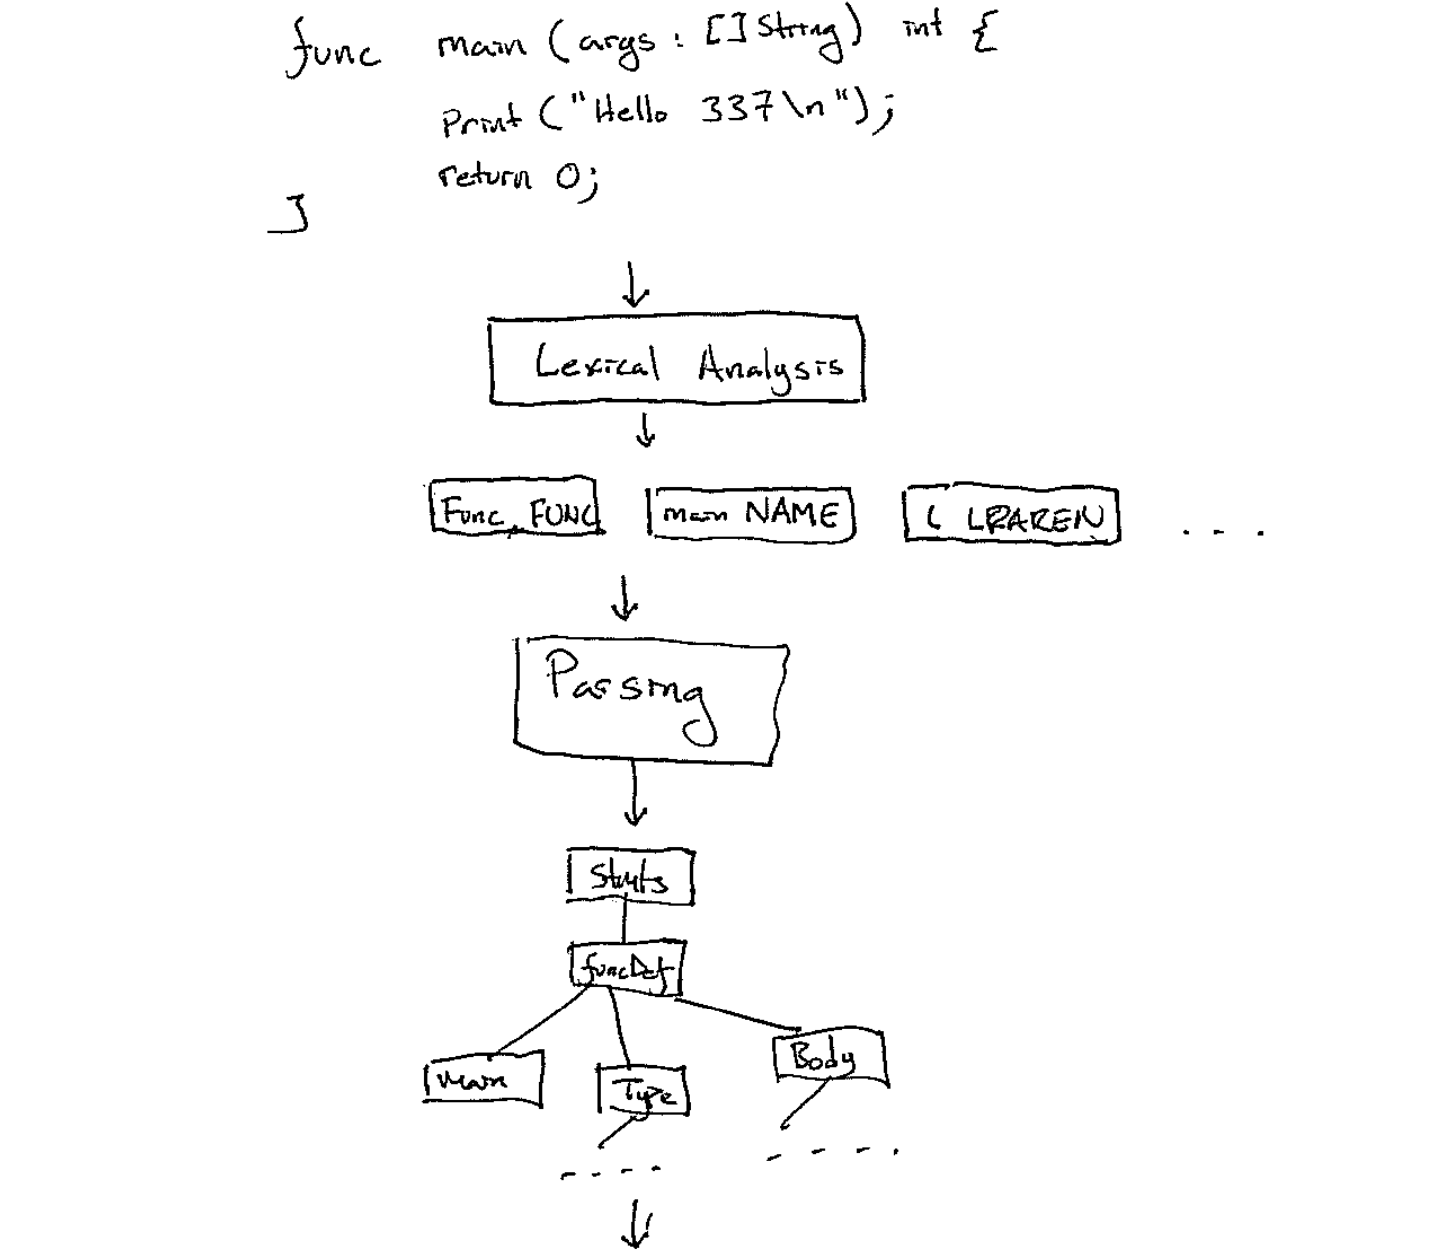 func main (args : [] String) int {
Print ("Hello 337\n");
return 0;
}
Lexical Analysis
Func, FUNC main NAME ( LPAREN ...
Parsing
Stmts
funcDef
main Type Body